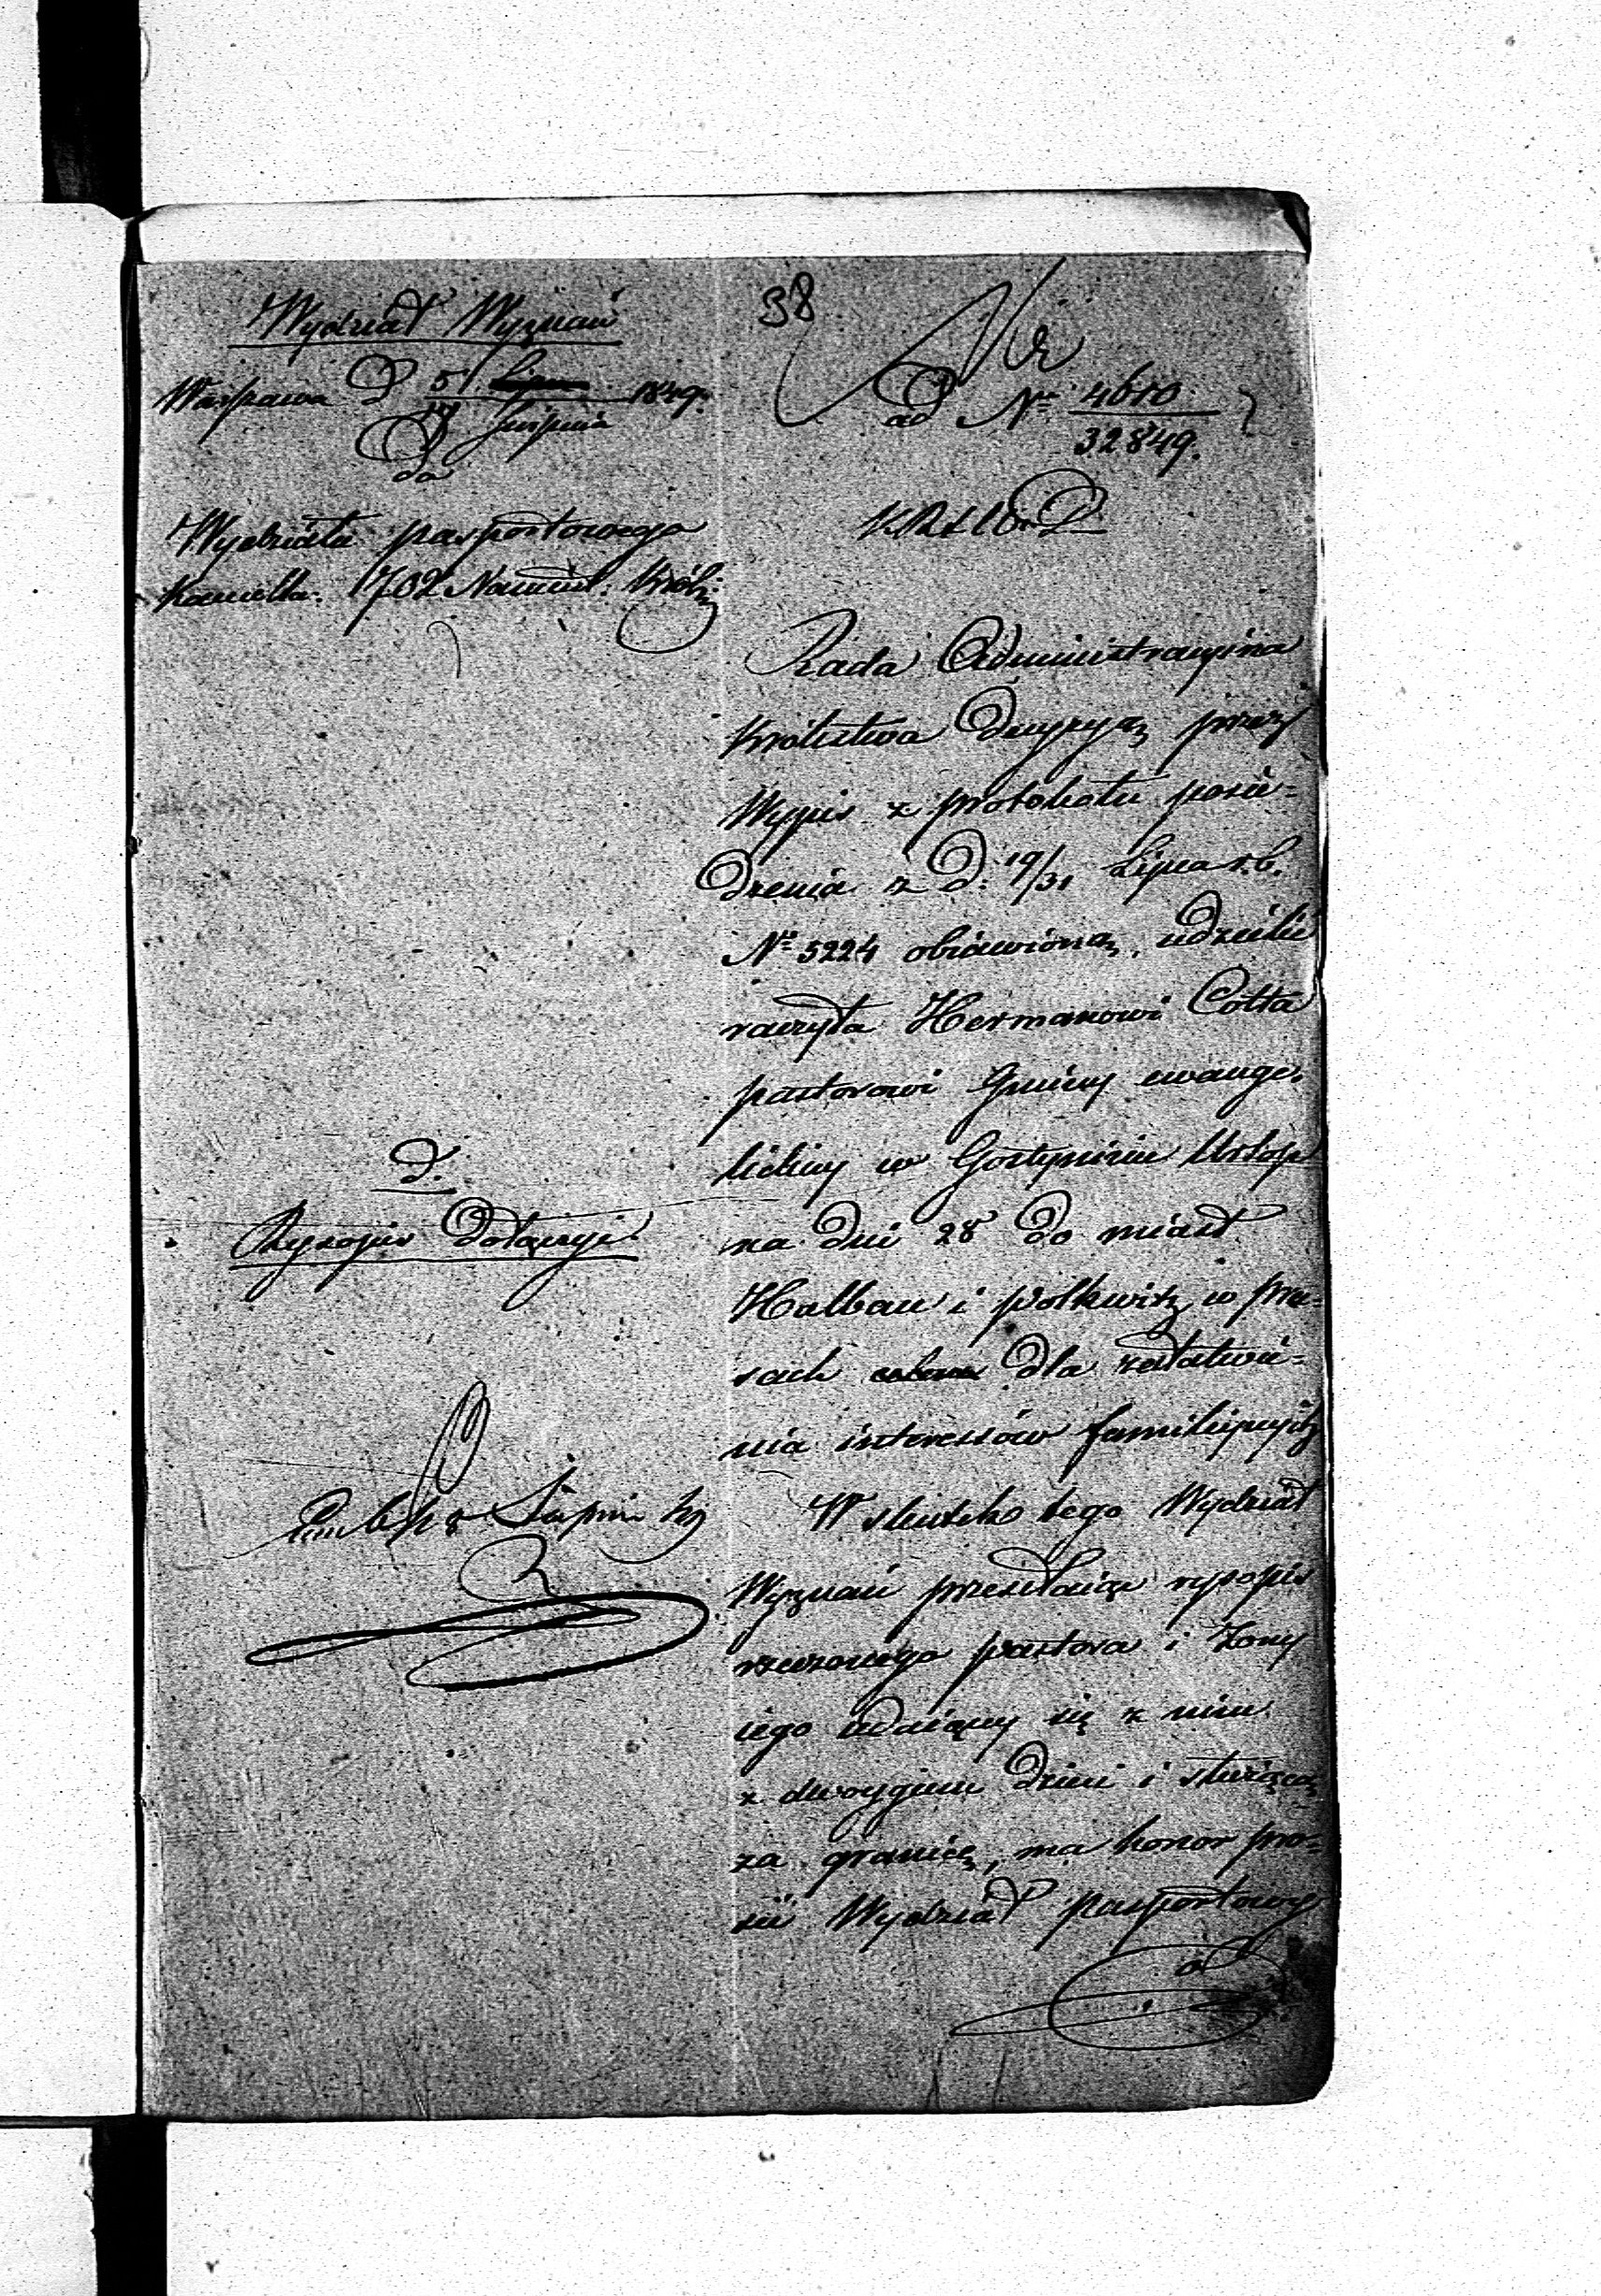 Wydział Wyznań
Warszawa d 5/17 Lipca Sierpnia 1849.
do
Wydziału paszportowego
Kancella: JO2 Namiest. Król:
d.
Rysopis dołączyć.
38
ad Nr 4610
32849.
Rada Administracyina
Królestwa decyzyą przez
Wypis z protokołu posie-
dzenia z d: 19/31 Lipca r.b.
Nr 5224 obiawioną, udzielić
raczyła Hermanowi Cotta
pastorowi Gminy ewange-
lickiey w Gostyninie Urlop
na dni 28 do miast
Halbau i Polkwitz w Pru-
sach dla załatwie-
nia interessów familiynych
W skutku tego Wydział
Wyznań przesyłaiąc rysopis
rzeczonego pastora i żony
iego udaiącey się z nim
z dwoygiem dzieci i służącą
za granicę, ma honor pro-
sić Wydział paszportowy